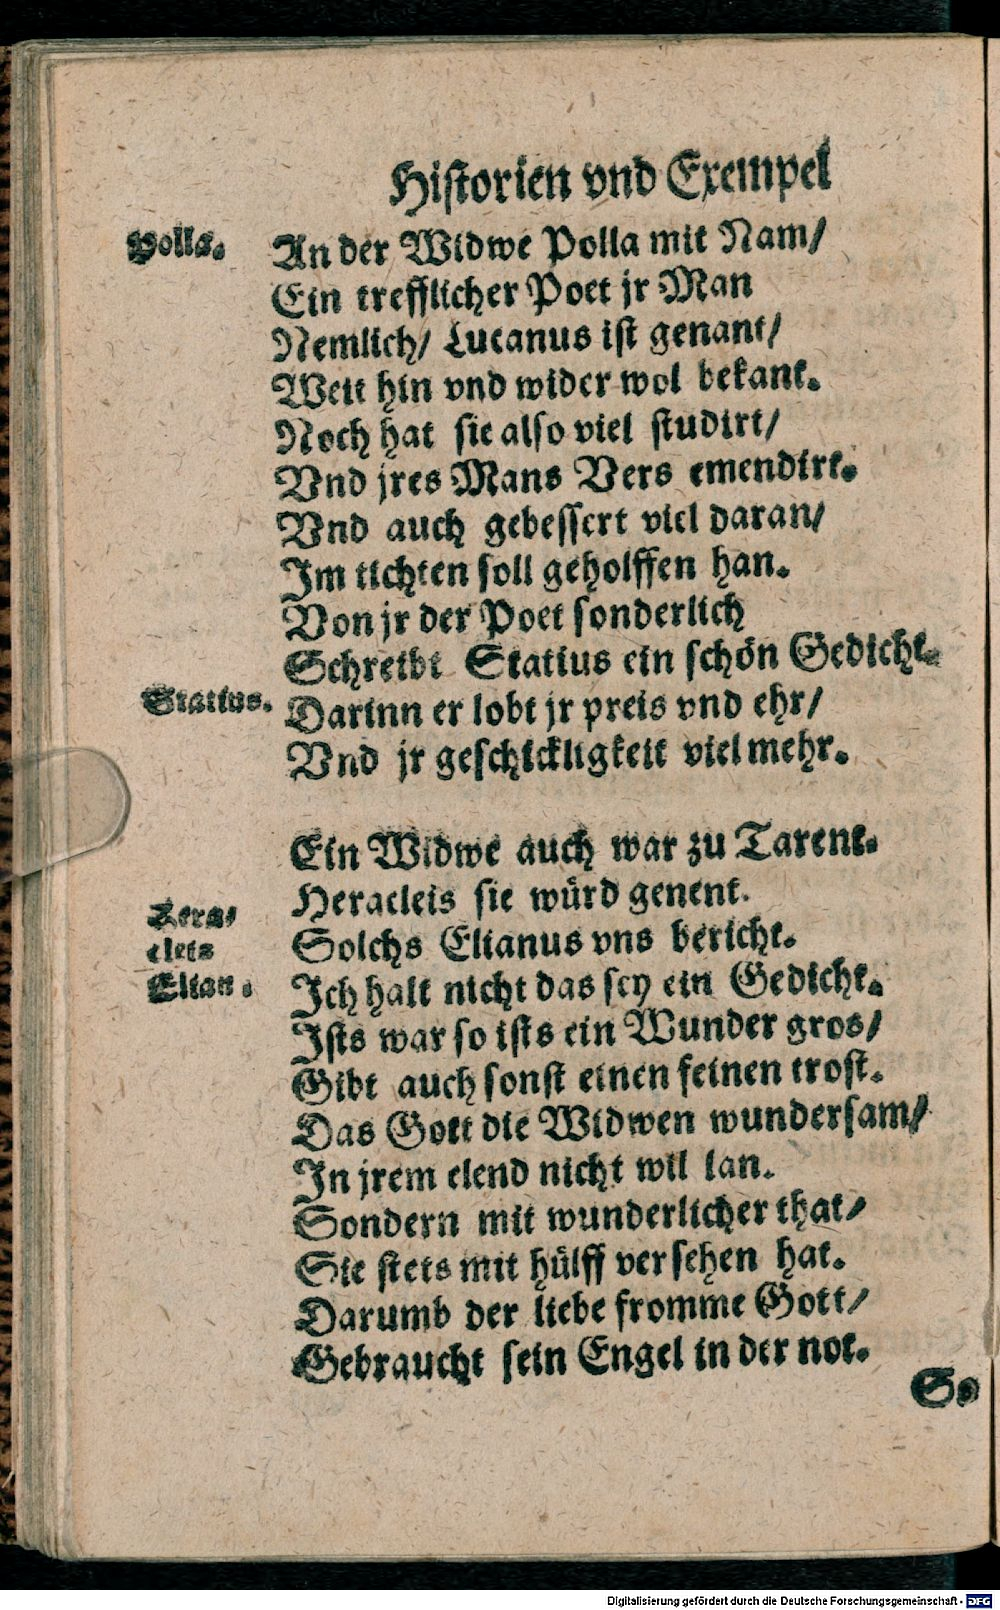 Historien vnd Exempel
Polla.
An der Widwe Polla mit Nam/
Ein trefflicher Poet jr Man
Nemlich/ Lucanus ist genant/
Weit hin vnd wider wol bekant.
Noch hat sie also viel studirt/
Vnd jres Mans Vers emendirt.
Vnd auch gebessert viel daran/
Im tichten soll geholffen han.
Von jr der Poet sonderlich
Schreibt Statius ein schön Gedicht.
Statius.
Darinn er lobt jr preis vnd ehr/
Vnd jr geschickligkeit viel mehr.
Ein Widwe auch war zu Tarent.
Heracleis sie würd genent.
Hera/
cleis
Solchs Elianus vns bericht.
Elian.
Ich halt nicht das sey ein Gedicht.
Ists war so ists ein Wunder gros/
Gibt auch sonst einen feinen trost.
Das Gott die Widwen wundersam/
In jrem elend nicht wil lan.
Sondern mit wunderlicher that/
Sie stets mit hülff versehen hat.
Darumb der liebe fromme Gott/
Gebraucht sein Engel in der not.
So
Digitalisierung gefördert durch die Deutsche Forschungsgemeinschaft - DFG